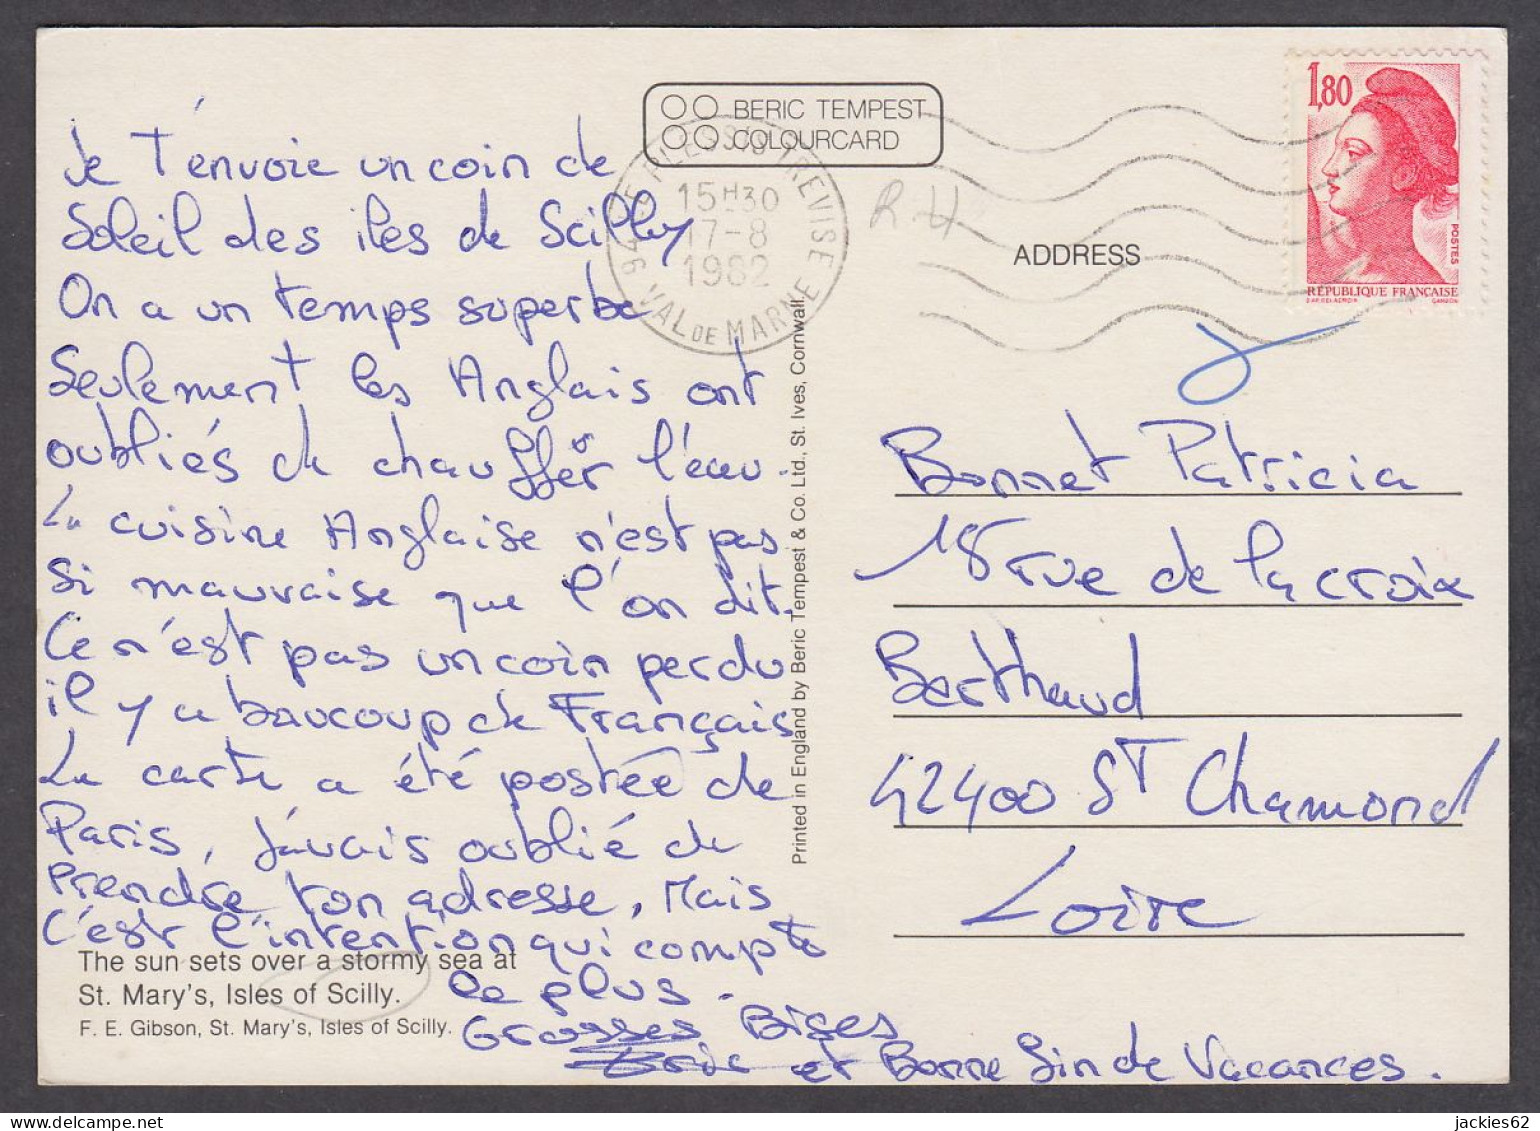 BERIC TEMPEST
COLOURCARD
1,80
POSTES
RÉPUBLIQUE FRANÇAISE
15H30
17-8
1982
VAL DE MARNE
R H
ADDRESS
Je t'envoie un coin de
Soleil des iles de Scilly
On a un temps superbe
Seulement les Anglais ont
oubliés de chauffer l'eau.
La cuisine Anglaise n'est pas
si mauvaise que l'on dit.
Ce n'est pas un coin perdu
il y a baucoup de Français
La carte a été postée de
Paris, J'avais oublié de
Prendre ton adresse, Mais
C'est l'intention qui compte
le plus.
Grosses Bises
et Bonne fin de Vacances.
The sun sets over a stormy sea at
St. Mary's, Isles of Scilly.
F. E. Gibson, St. Mary's, Isles of Scilly.
Printed in England by Beric Tempest & Co. Ltd., St. Ives, Cornwall.
Bonnet Patricia
18 rue de la croix
Berthaud
42400 ST Chamond
Loire
jackies62